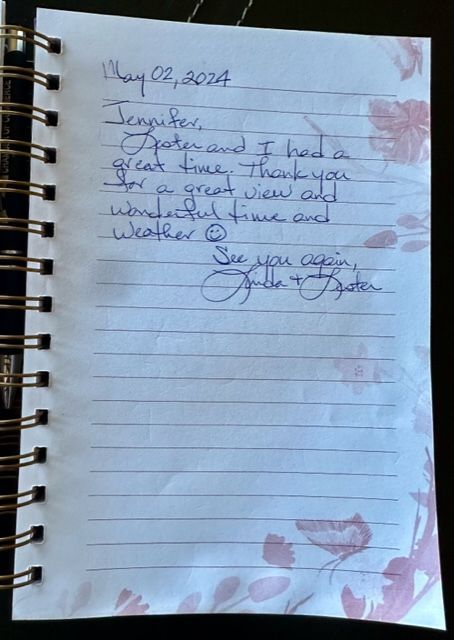 May 02, 2024
Jennifer,
and I had a
great time. Thank you
for a great view and
wonderful time and
weather ☺
See you again,
Linda +
CHAMBER OF COMMERCE